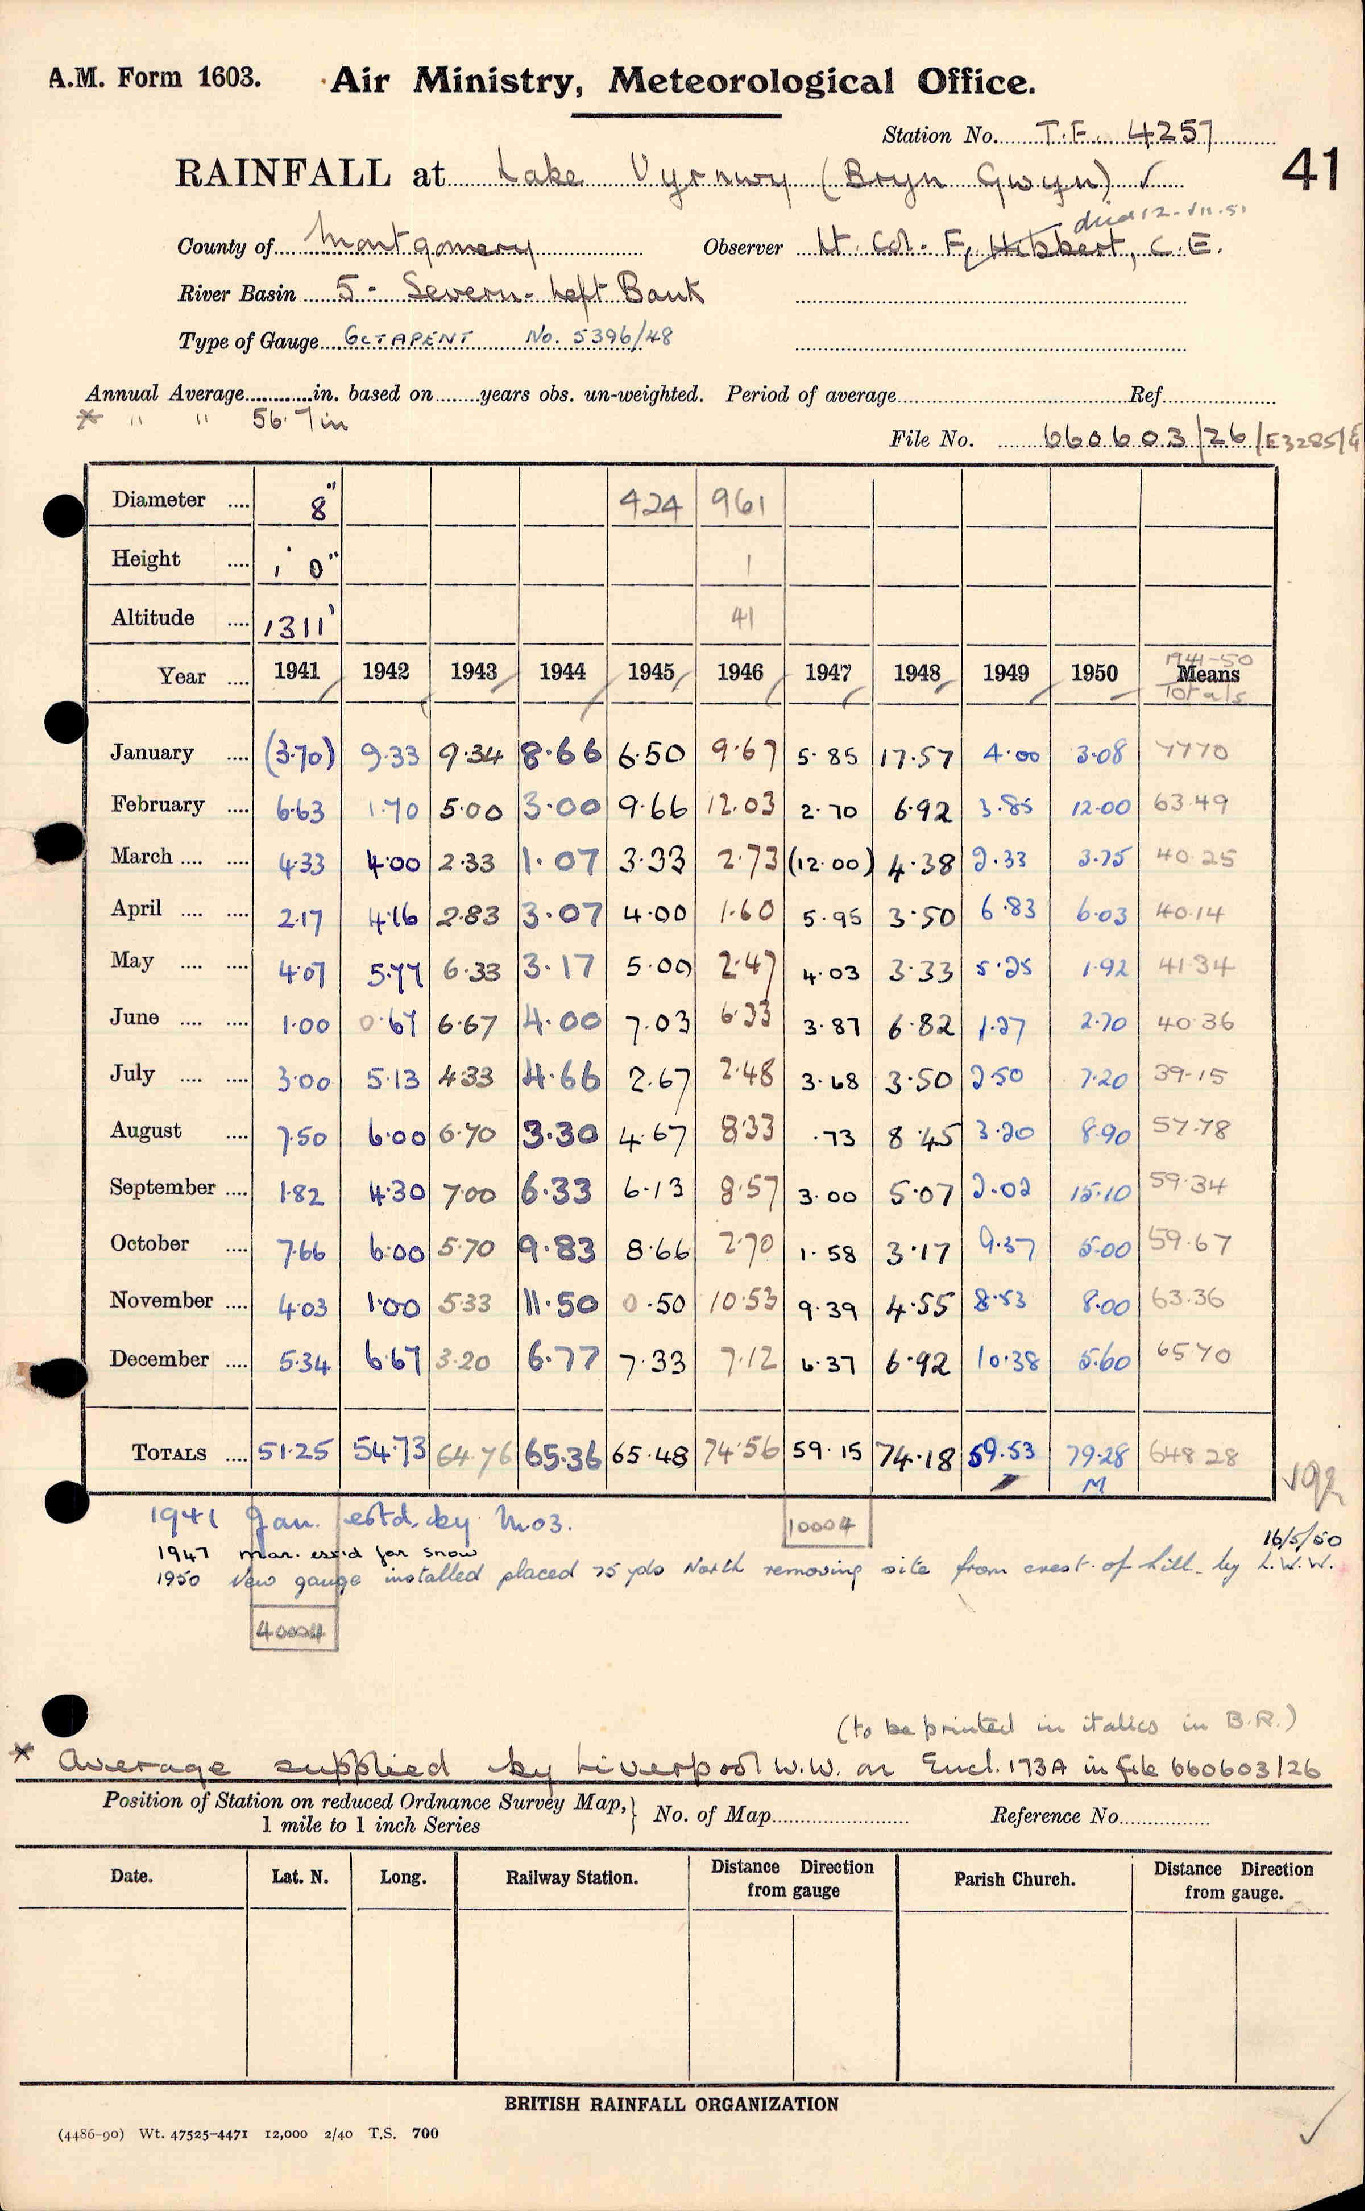 A.M. Form 1603. Air Ministry, Meteorological Office.
Station No. T.F. 4257
41
RAINFALL at Lake Vyrnwy (Bryn Gwyn) ✓
died 12.VII.51
County of Montgomery Observer Lt. Col. F. Hibbert, C.E.
River Basin 5 - Severn - Left Bank
Type of Gauge OCTAPENT No. 5396/48
Annual Average............in. based on........years obs. un-weighted. Period of average........ Ref........
* " " 56.7in
File No. 660603/26/E3285/
Diameter .... 8" 424 961
Height .... 1' 0" 1
Altitude .... 1311' 41
Year .... 1941 1942 1943 1944 1945 1946 1947 1948 1949 1950 1941-50 Means Totals
January .... (3.70) 9.33 9.34 8.66 6.50 9.67 5.85 17.57 4.00 3.08 7770
February .... 6.63 1.70 5.00 3.00 9.66 12.03 2.70 6.92 3.85 12.00 63.49
March .... .... 4.33 4.00 2.33 1.07 3.33 2.73 (12.00) 4.38 2.33 3.75 40.25
April .... .... 2.17 4.16 2.83 3.07 4.00 1.60 5.95 3.50 6.83 6.03 40.14
May .... .... 4.07 5.77 6.33 3.17 5.00 2.47 4.03 3.33 5.25 1.92 41.34
June .... .... 1.00 0.67 6.67 4.00 7.03 6.33 3.87 6.82 1.27 2.70 40.36
July .... .... 3.00 5.13 4.33 4.66 2.67 2.48 3.68 3.50 2.50 7.20 39.15
August .... 7.50 6.00 6.70 3.30 4.67 8.33 .73 8.45 3.20 8.90 57.78
September .... 1.82 4.30 7.00 6.33 6.13 8.57 3.00 5.07 2.02 15.10 59.34
October .... 7.66 6.00 5.70 9.83 8.66 2.70 1.58 3.17 9.37 5.00 59.67
November .... 4.03 1.00 5.33 11.50 0.50 10.53 9.39 4.55 8.53 8.00 63.36
December .... 5.34 6.67 3.20 6.77 7.33 7.12 6.37 6.92 10.38 5.60 65.70
TOTALS .... 51.25 54.73 64.76 65.36 65.48 74.56 59.15 74.18 59.53 79.28 648 28
M
1941 Jan. estd. by M.O3. 10004
1947 Mar. est'd for snow 16/5/50
1950 New gauge installed placed 75 yds North removing site from crest of hill. by L.W.W.
40004
(to be printed in italics in B.R.)
* Average supplied by Liverpool W.W. on Encl. 173A in file 660603/26
Position of Station on reduced Ordnance Survey Map, 1 mile to 1 inch Series } No. of Map........ Reference No........
Date. Lat. N. Long. Railway Station. Distance Direction from gauge Parish Church. Distance Direction from gauge.
BRITISH RAINFALL ORGANIZATION
(4486-90) Wt. 47525-4471 12,000 2/40 T.S. 700